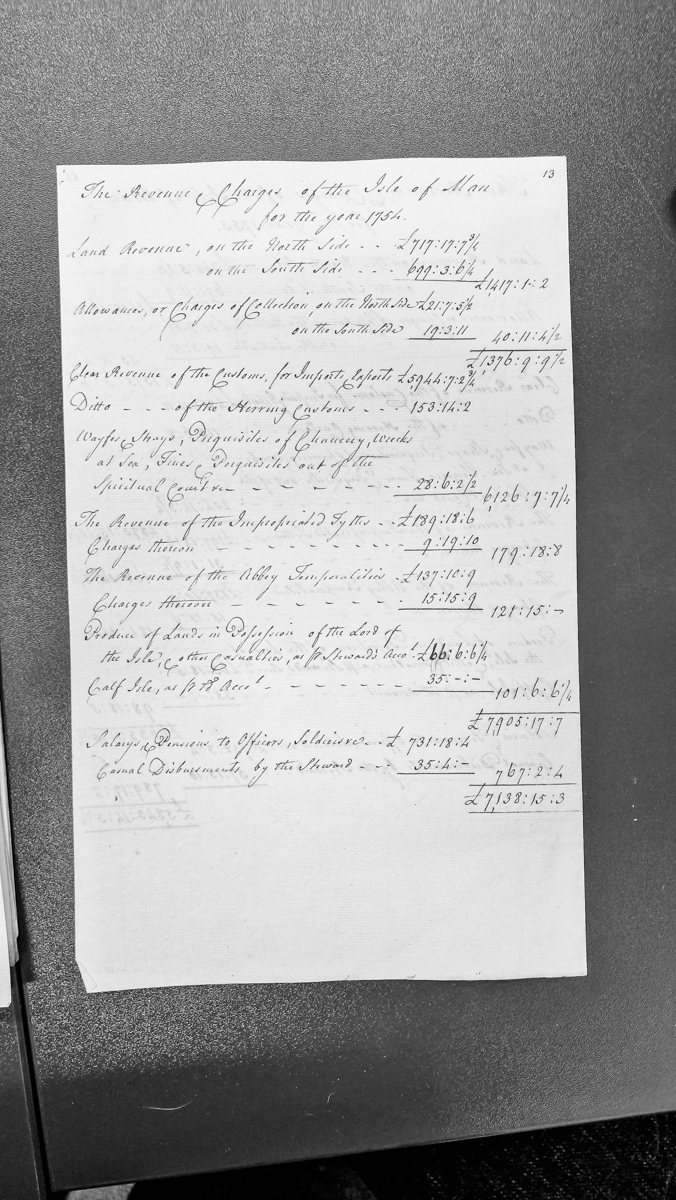 13
The Revenue & Charges of the Isle of Man
for the year 1754.
Land Revenue, on the North Side - - £717:17:7¾
on the South Side - - - 699:3:6¼ £1,417:1:2
Allowances, or Charges of Collection, on the North Side £21:7:5½
on the South Side 19:3:11 40:11:4½
£1376:9:9½
Clear Revenue of the Customs, for Imports & Exports £5,944:7:2¾
Ditto - - - of the Herring Customs - - - 153:14:2
Wayfes, Strays, Perquisites of Chancery, Wrecks
at Sea, Fines & Perquisites out of the
Spiritual Court &c - - - - - - 28:6:2½ 6,126:7:7¼
The Revenue of the Impropriated Tyths - - £189:18:6
Charges thereon - - - - - - - - - 9:19:10 179:18:8
The Revenue of the Abbey Temporalities - £137:10:9
Charges thereon - - - - - - - 15:15:9 121:15:-
Produce of Lands in Possession of the Lord of
the Isle, & other Casualties, as pr Steward's Accot. £66:6:6¼
Calf Isle, as pr Do. Accot. - - - - - - 35:-:- 101:6:6¼
£7,905:17:7
Salarys, & Pensions to Officers, Soldiers &c - - £ 731:18:4
Casual Disbursments by the Steward - - - 35:4:- 767:2:4
£7,138:15:3